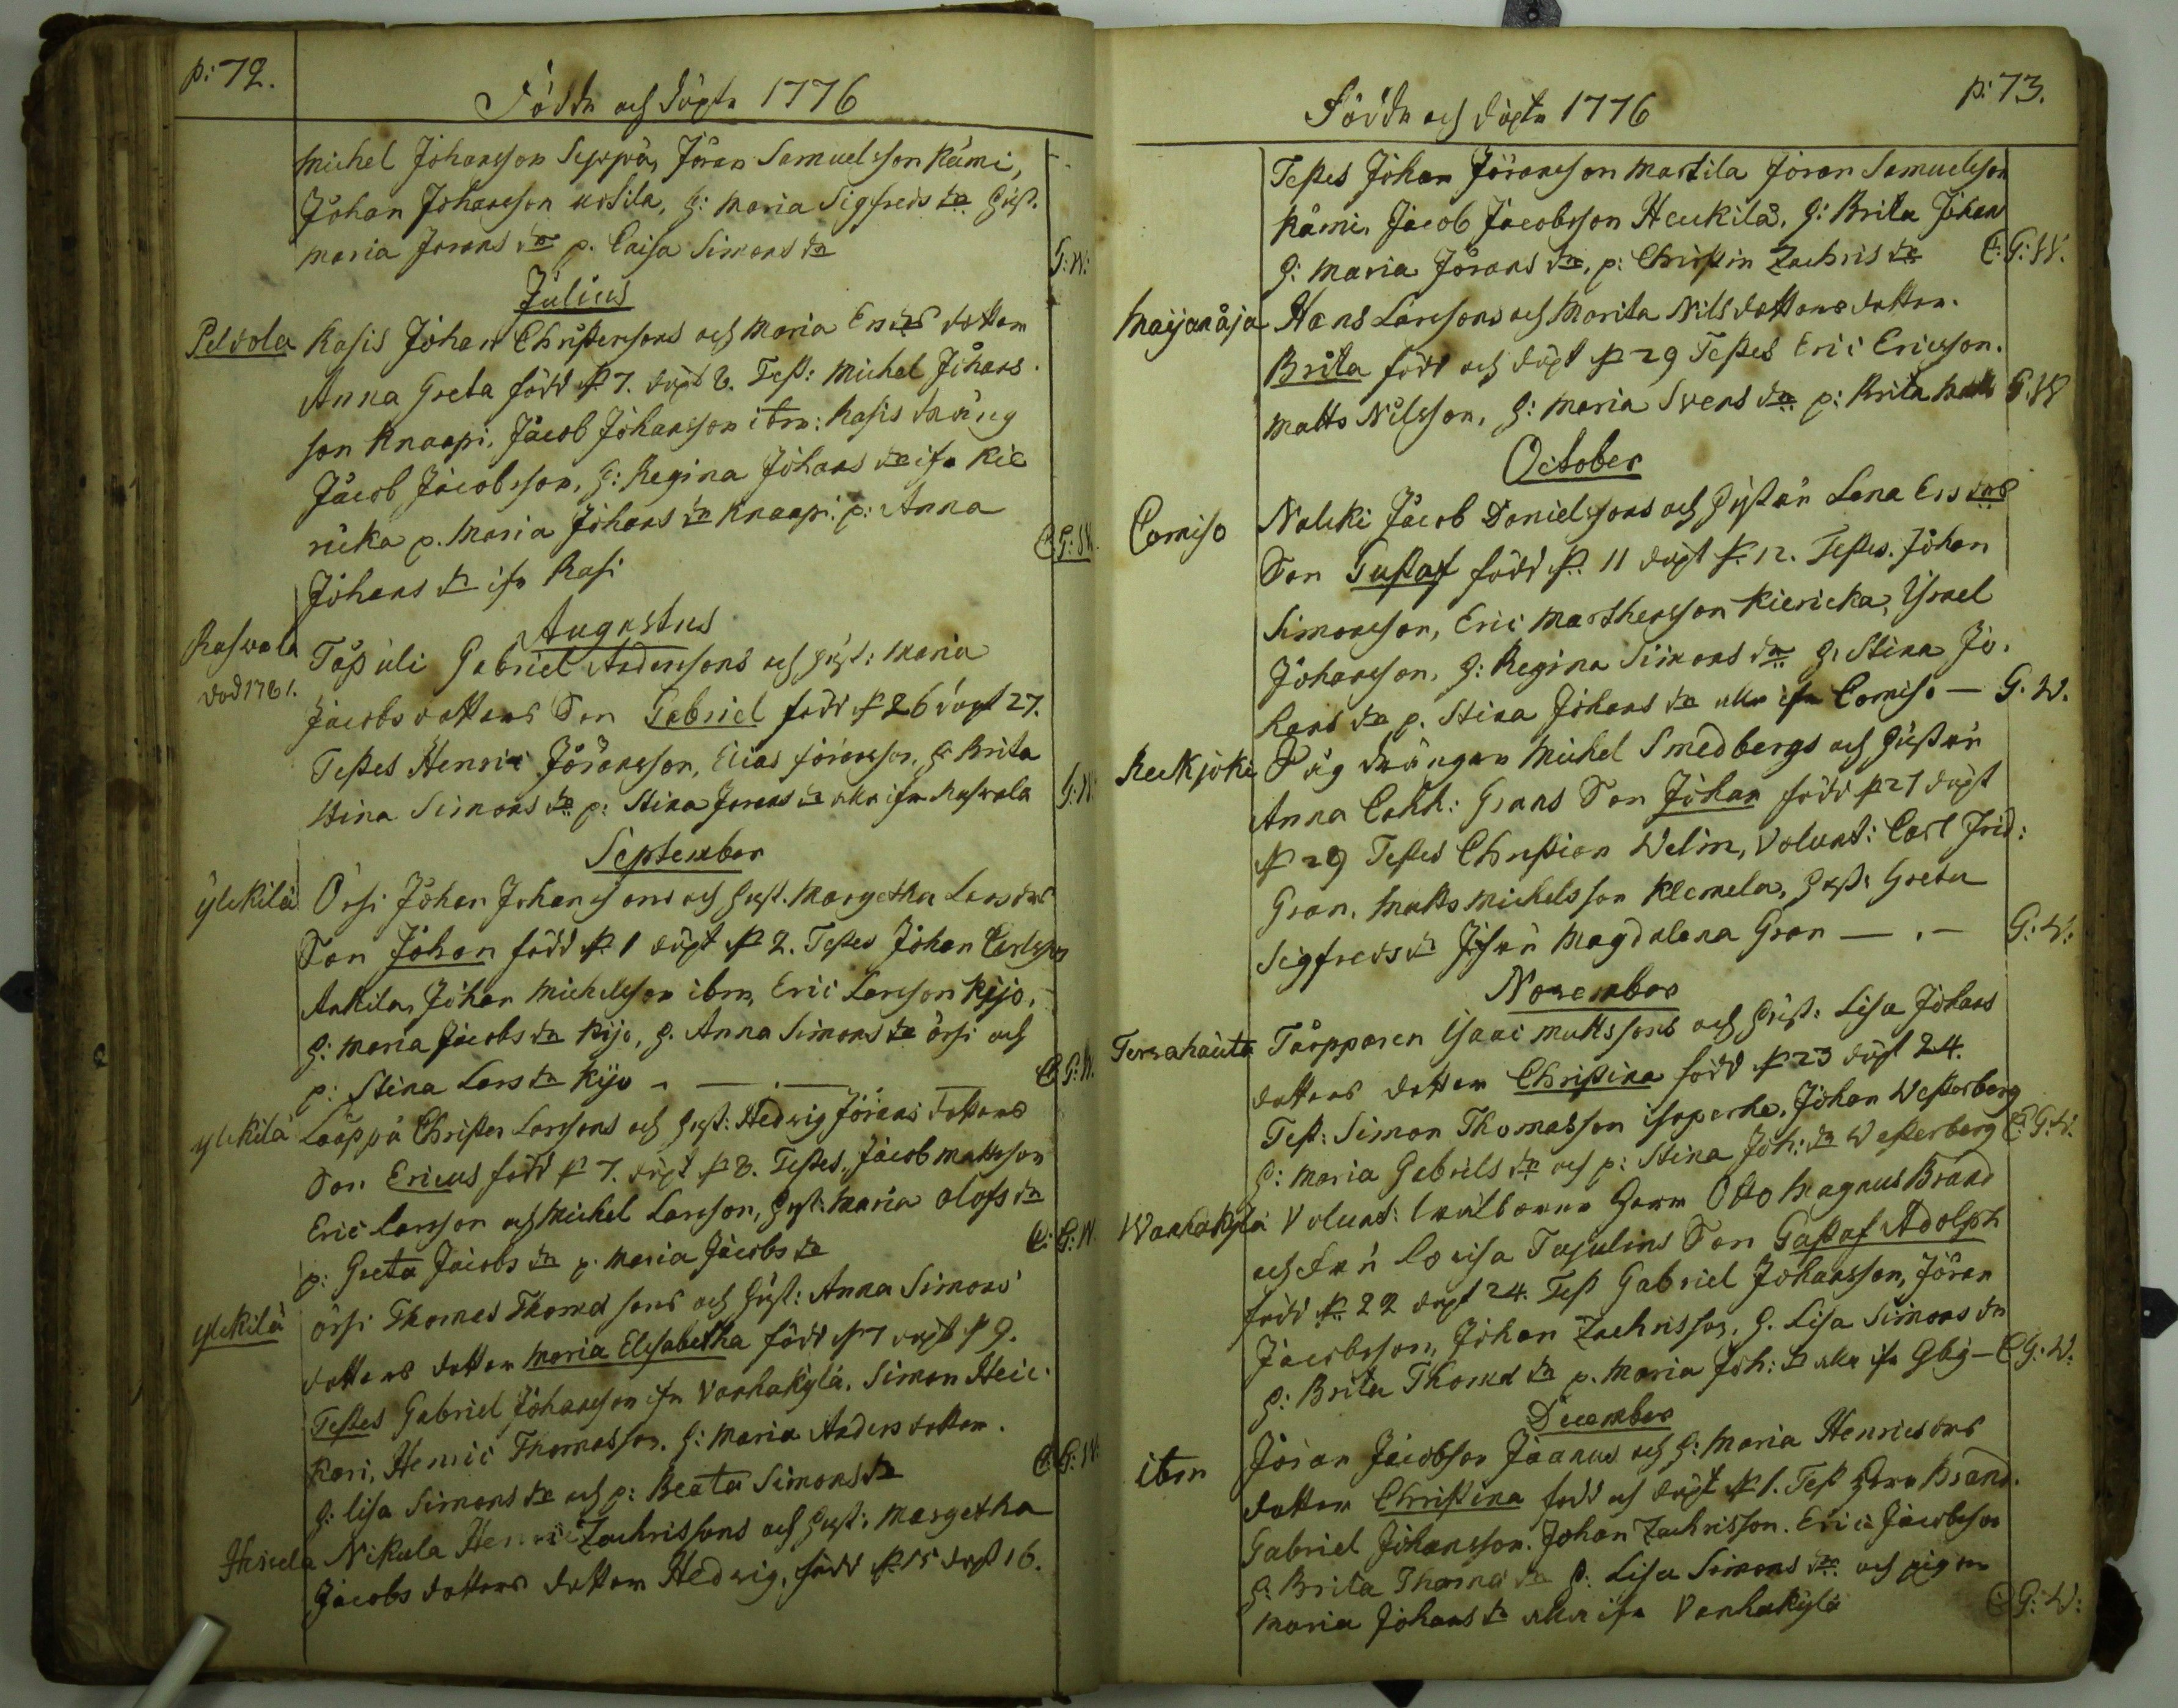 p: 72.
Födde och döpte 1776
Michel Johansson Seppä, Jöran Samuelsson Rämi,
Johan Johansson, h: Maria Sigfreds dr
Maria Jörans dr p. Caisa Simons dr
G: W:
Julius
Peldola Rasis Johan Christersons och Maria Ers drs dotter
Anna Greta född d 7. döpt 8. Test: Michel Johans
son Knaapi, Jacob Johansson ibm: Rasis dräng
Jacob Jacobsson, h: Regina Johans dr ifr Kie
ricka p. Maria Johans dr Knaapi. p: Anna
Johans dr ifr Rasi
C. G: W.
Augustus
Raswala Gabriel Anderssons och hust: Maria
död 1781. Jacobs dotters Son Gabriel född d 26 döpt 27.
Testes Henric Jöransson, Elias Jöransson, h: Brita
Stina Simons dr p: Stina Jorans dr alla ifr Raswala
G: W:
September
ylekilä Örsi Johan Johanssons och hust. Margetha Lars drs
Son Johan född d. 1 döpt d 2. Testes Johan Carlsson
Ankila, Johan Michelsson ibm, Eric Larsson Kijo,
h: Maria Jacobs dr Kijo, h. Anna Simons dr Örsi och
p: Stina Lars dr Kijo
C. G: W.
ylekilä Lääppä Christer Larssons och hust: Hedvig Jörans dotters
Son Ericus född d 7. döpt d 8. Testes, Jacob Mattsson
Eric Larsson och Michel Larsson, hust: Maria Olofs dr
p: Greta Jacobs dr p. Maria Jacobs dr
C: G: W.
ylekilä Örsi Thomas Thomæ sons och hust: Anna Simons
dotters dotter Maria Elisabetha född d 7 döpt d 9.
Testes Gabriel Johansson ifr Vanhakylä, Simon Hei
kari, Henric Thomasson. h: Maria Anders dotter.
h: Lisa Simons dr och p: Beata Simons dr
C: G: W.
Nikula Henric Zachrissons och hust: Margetha
Jacobs dotters dotter Hedvig, född d. 15 döpt 16.
p: 73.
Födde och döpte 1776
Testes Johan Jöransson Martila Jöran Samuelsson
Rämi, Jacob Jacobsson Heikilä, h: Brita Johan
h: Maria Jörans dr, p: Christin Zachris dr
C: G: W.
Maijanåja Hans Larsons och Marita Nils dotters dotter.
Brita född och döpt d 29 Testes Eric Ericsson.
Matts Nilsson, h: Maria Svens dr p: Brita Matts
G: W
October
Comiso Jacob Danielssons och Hustrun Lena Ers drs
Son Gustaf född d. 11 döpt d. 12. Testes. Johan
Simonsson, Eric Marthensson Kiericka, Israel
Johansson, h: Regina Simons dr h: Stina Jo.
hans dr p. Stina Johans dr alla ifr Comiso — G. W.
Reekjoki drängen Michel Smedbergs och hustrun
Anna Cath: Grans Son Johan född d 27 döpt
d 29 Testes Christian Welin, Volunt: Carl Frid:
Gran, Matts Michelsson Klemela, hust: Greta
Sigfreds dr Jfrun Magdalena Gran —.—
G: W:
November
Tervahauta Tårpparen Isaac Mattssons och hust: Lisa Johans
dotters dotter Christina född d 23 döpt 24.
Test: Simon Thomasson Isoperhe, Johan Westerberg
h: Maria Gabriels dr och p: Stina Joh: dr Westerberg
C: G: W.
Wanhakylä Volunt: Herr Otto Magnus Brand
och Fru Lovisa Tujulins Son Gustaf Adolph
född d. 22 döpt 24. Test Gabriel Johansson, Jöran
Jacobsson, Johan Zachrisson, h. Lisa Simons dr
h: Brita Thomæ dr p. Maria Joh: dr alla ifr Gby — C G: W:
December
ibm Jöran Jacobson Jaanus och h: Maria Henrics drs
dotter Christina född och döpt d 1. Test Herr Brand.
Gabriel Johansson. Johan Zachrisson. Eric Jacobsson
h: Brita Thomæ dr h: Lisa Simons dr och pigan
Maria Johans dr alla ifr Vanhakylä
C G: W: